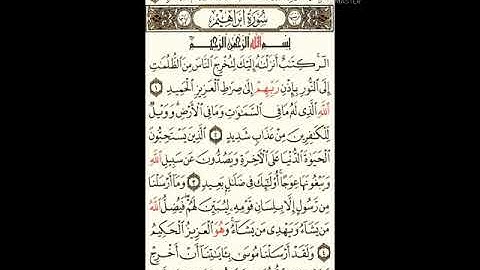 MASTER
سُورَةُ إِبْرَاهِيمَ
بِسْمِ اللَّهِ الرَّحْمَٰنِ الرَّحِيمِ
الٓر ۚ كِتَٰبٌ أَنزَلْنَٰهُ إِلَيْكَ لِتُخْرِجَ النَّاسَ مِنَ الظُّلُمَٰتِ
إِلَى النُّورِ بِإِذْنِ رَبِّهِمْ إِلَىٰ صِرَٰطِ الْعَزِيزِ الْحَمِيدِ ١
اللَّهِ الَّذِي لَهُ مَا فِي السَّمَٰوَٰتِ وَمَا فِي الْأَرْضِ ۗ وَوَيْلٌ
لِّلْكَٰفِرِينَ مِنْ عَذَابٍ شَدِيدٍ ٢ الَّذِينَ يَسْتَحِبُّونَ
الْحَيَوٰةَ الدُّنْيَا عَلَى الْآخِرَةِ وَيَصُدُّونَ عَن سَبِيلِ اللَّهِ
وَيَبْغُونَهَا عِوَجًا ۚ أُولَٰئِكَ فِي ضَلَٰلٍ بَعِيدٍ ٣ وَمَا أَرْسَلْنَا
مِن رَّسُولٍ إِلَّا بِلِسَانِ قَوْمِهِ لِيُبَيِّنَ لَهُمْ ۖ فَيُضِلُّ اللَّهُ
مَن يَشَاءُ وَيَهْدِي مَن يَشَاءُ ۚ وَهُوَ الْعَزِيزُ الْحَكِيمُ
٤ وَلَقَدْ أَرْسَلْنَا مُوسَىٰ بِـَٔايَٰتِنَا أَنْ أَخْرِجْ